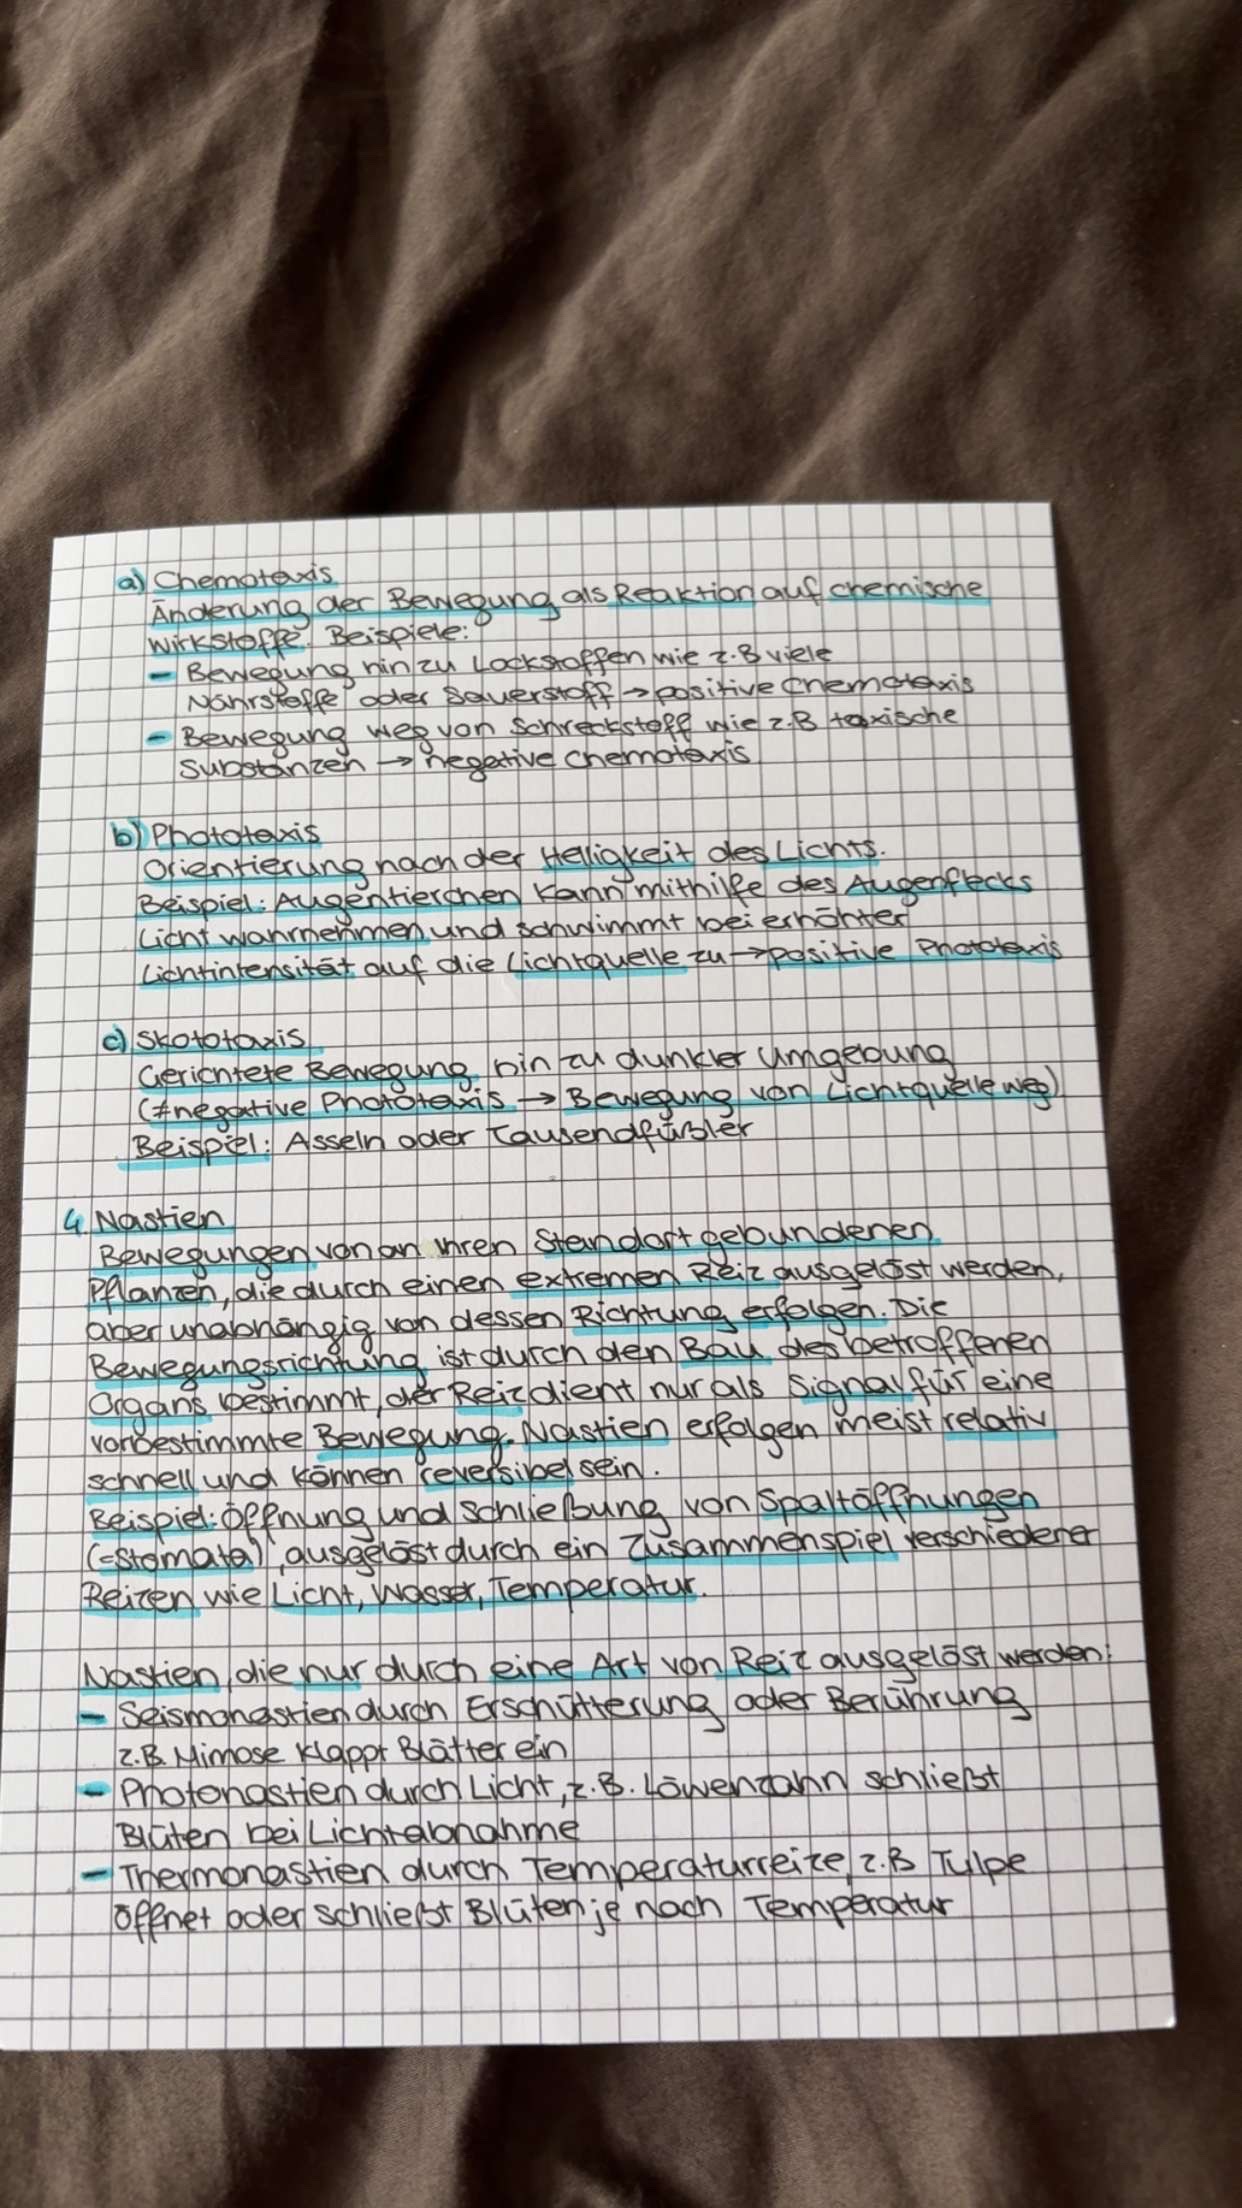 a) Chemotaxis
Änderung der Bewegung als Reaktion auf chemische
Wirkstoffe. Beispiele:
- Bewegung hin zu Lockstoffen wie z.B viele
Nährstoffe oder Sauerstoff → positive Chemotaxis
- Bewegung weg von Schreckstoff wie z.B toxische
Substanzen → negative Chemotaxis
b) Phototaxis
Orientierung nach der Helligkeit des Lichts.
Beispiel: Augentierchen kann mithilfe des Augenflecks
Licht wahrnehmen und schwimmt bei erhöhter
Lichtintensität auf die Lichtquelle zu → positive Phototaxis
c) Skototaxis
Gerichtete Bewegung hin zu dunkler Umgebung
(≠ negative Phototaxis → Bewegung von Lichtquelle weg)
Beispiel: Asseln oder Tausendfüßler
4. Nastien
Bewegungen von an ihren Standort gebundenen
Pflanzen, die durch einen extremen Reiz ausgelöst werden,
aber unabhängig von dessen Richtung erfolgen. Die
Bewegungsrichtung ist durch den Bau des betroffenen
Organs bestimmt, der Reiz dient nur als Signal für eine
vorbestimmte Bewegung. Nastien erfolgen meist relativ
schnell und können reversibel sein.
Beispiel: Öffnung und Schließung von Spaltöffnungen
(=Stomata), ausgelöst durch ein Zusammenspiel verschiedener
Reizen wie Licht, Wasser, Temperatur.
Nastien, die nur durch eine Art von Reiz ausgelöst werden:
- Seismonastien durch Erschütterung oder Berührung
z.B. Mimose klappt Blätter ein
- Photonastien durch Licht, z.B. Löwenzahn schließt
Blüten bei Lichtabnahme
- Thermonastien durch Temperaturreize, z.B Tulpe
öffnet oder schließt Blüten je nach Temperatur